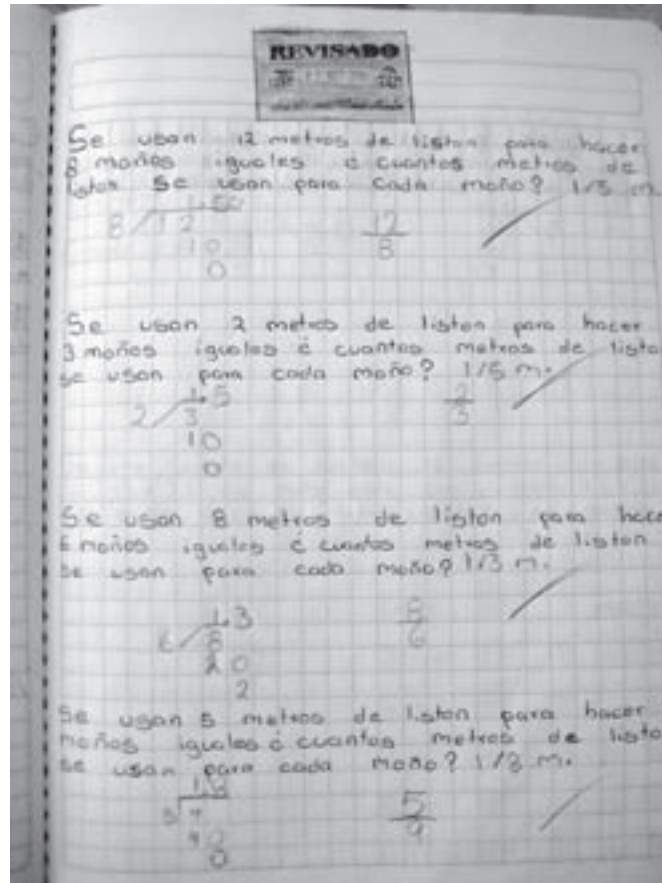 REVISADO
Se usan 12 metros de liston para hacer
8 moños iguales ¿ cuantos metros de
liston se usan para cada moño? 1/5 m.
1.50
8 12 12/8
10
0
Se usan 2 metros de liston para hacer
3 moños iguales ¿ cuantos metros de listo
se usan para cada moño? 1/5 m.
1.5
2 3 2/3
10
0
Se usan 8 metros de liston para hace
6 moños iguales ¿ cuantos metros de liston
se usan para cada moño? 1/3 m.
1.3
6 8 8/6
20
2
Se usan 5 metros de liston para hacer
moños iguales ¿ cuantos metros de listo
se usan para cada moño? 1/8 m.
1.8
5 9 5/9
40
0